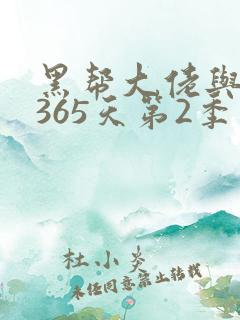 黑帮大佬與
365天第2季
杜小炎
未经同意禁止转载